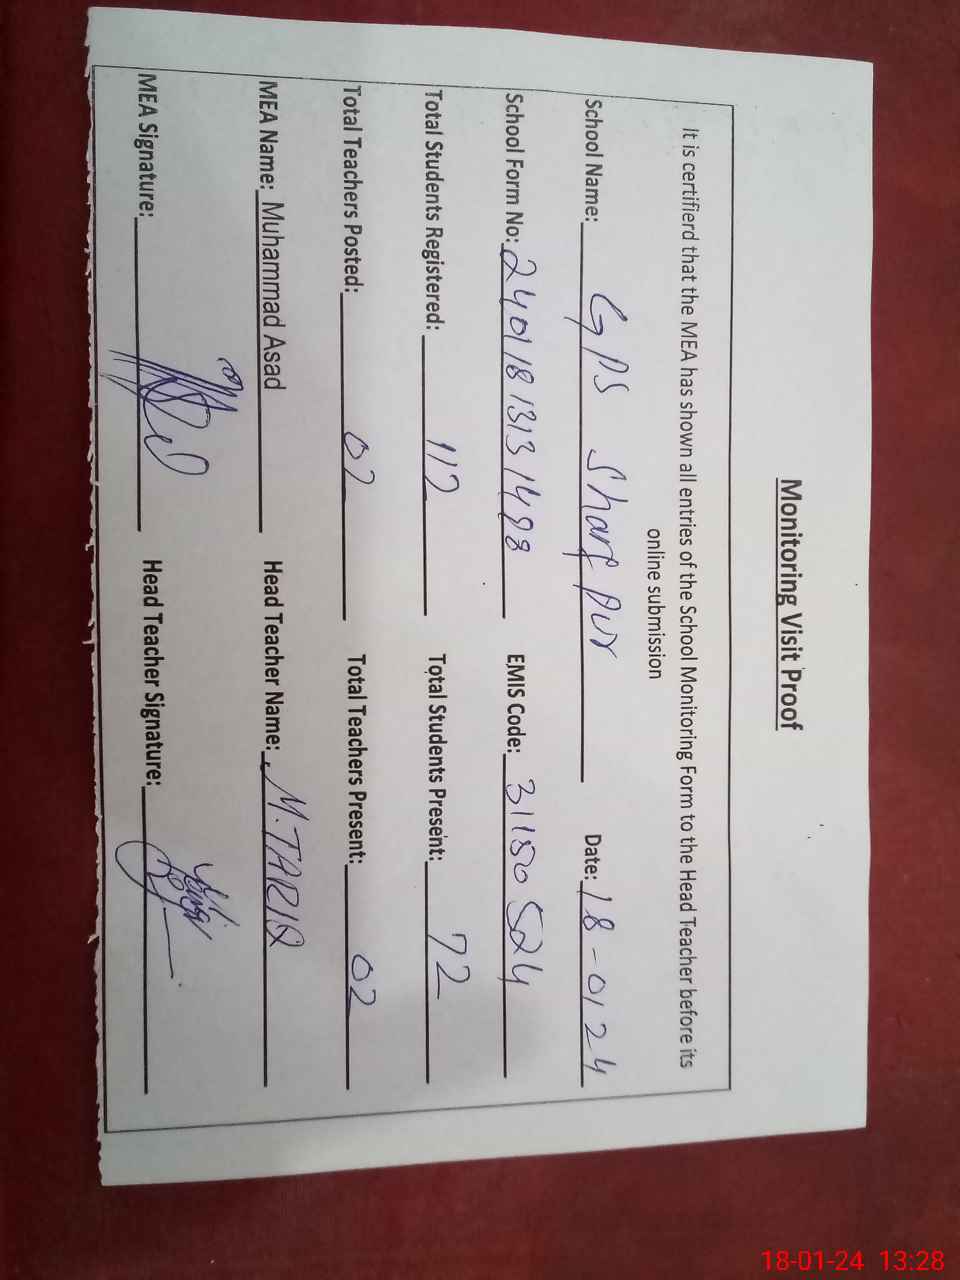 Monitoring Visit Proof
It is certifierd that the MEA has shown all entries of the School Monitoring Form to the Head Teacher before its
online submission
School Name: GPS Sharf pur Date: 18-01 24
School Form No: 24011813131498 EMIS Code: 31150524
Total Students Registered: 112 Total Students Present: 72
Total Teachers Posted: 02 Total Teachers Present: 02
MEA Name: Muhammad Asad Head Teacher Name: M.TARIQ
MEA Signature: Head Teacher Signature:
18-01-24 13:28